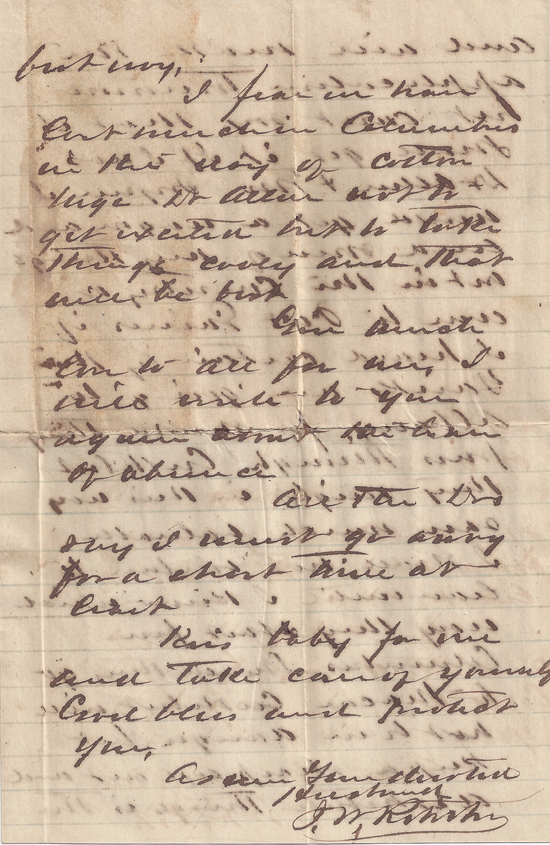 best way.
I fear we have
lost much in Columbus
in the way of cotton
urge Dr Allen not to
get excited but to take
things cooly and that
will be best
Give much
love to all for me, I
will write to you
again about the leave
of absence
All the Drs
say I must go away
for a short time at
least
Kiss baby for me
and take care of yourself
God bless and protect
you,
As ever Your devoted
Husband
J. W.